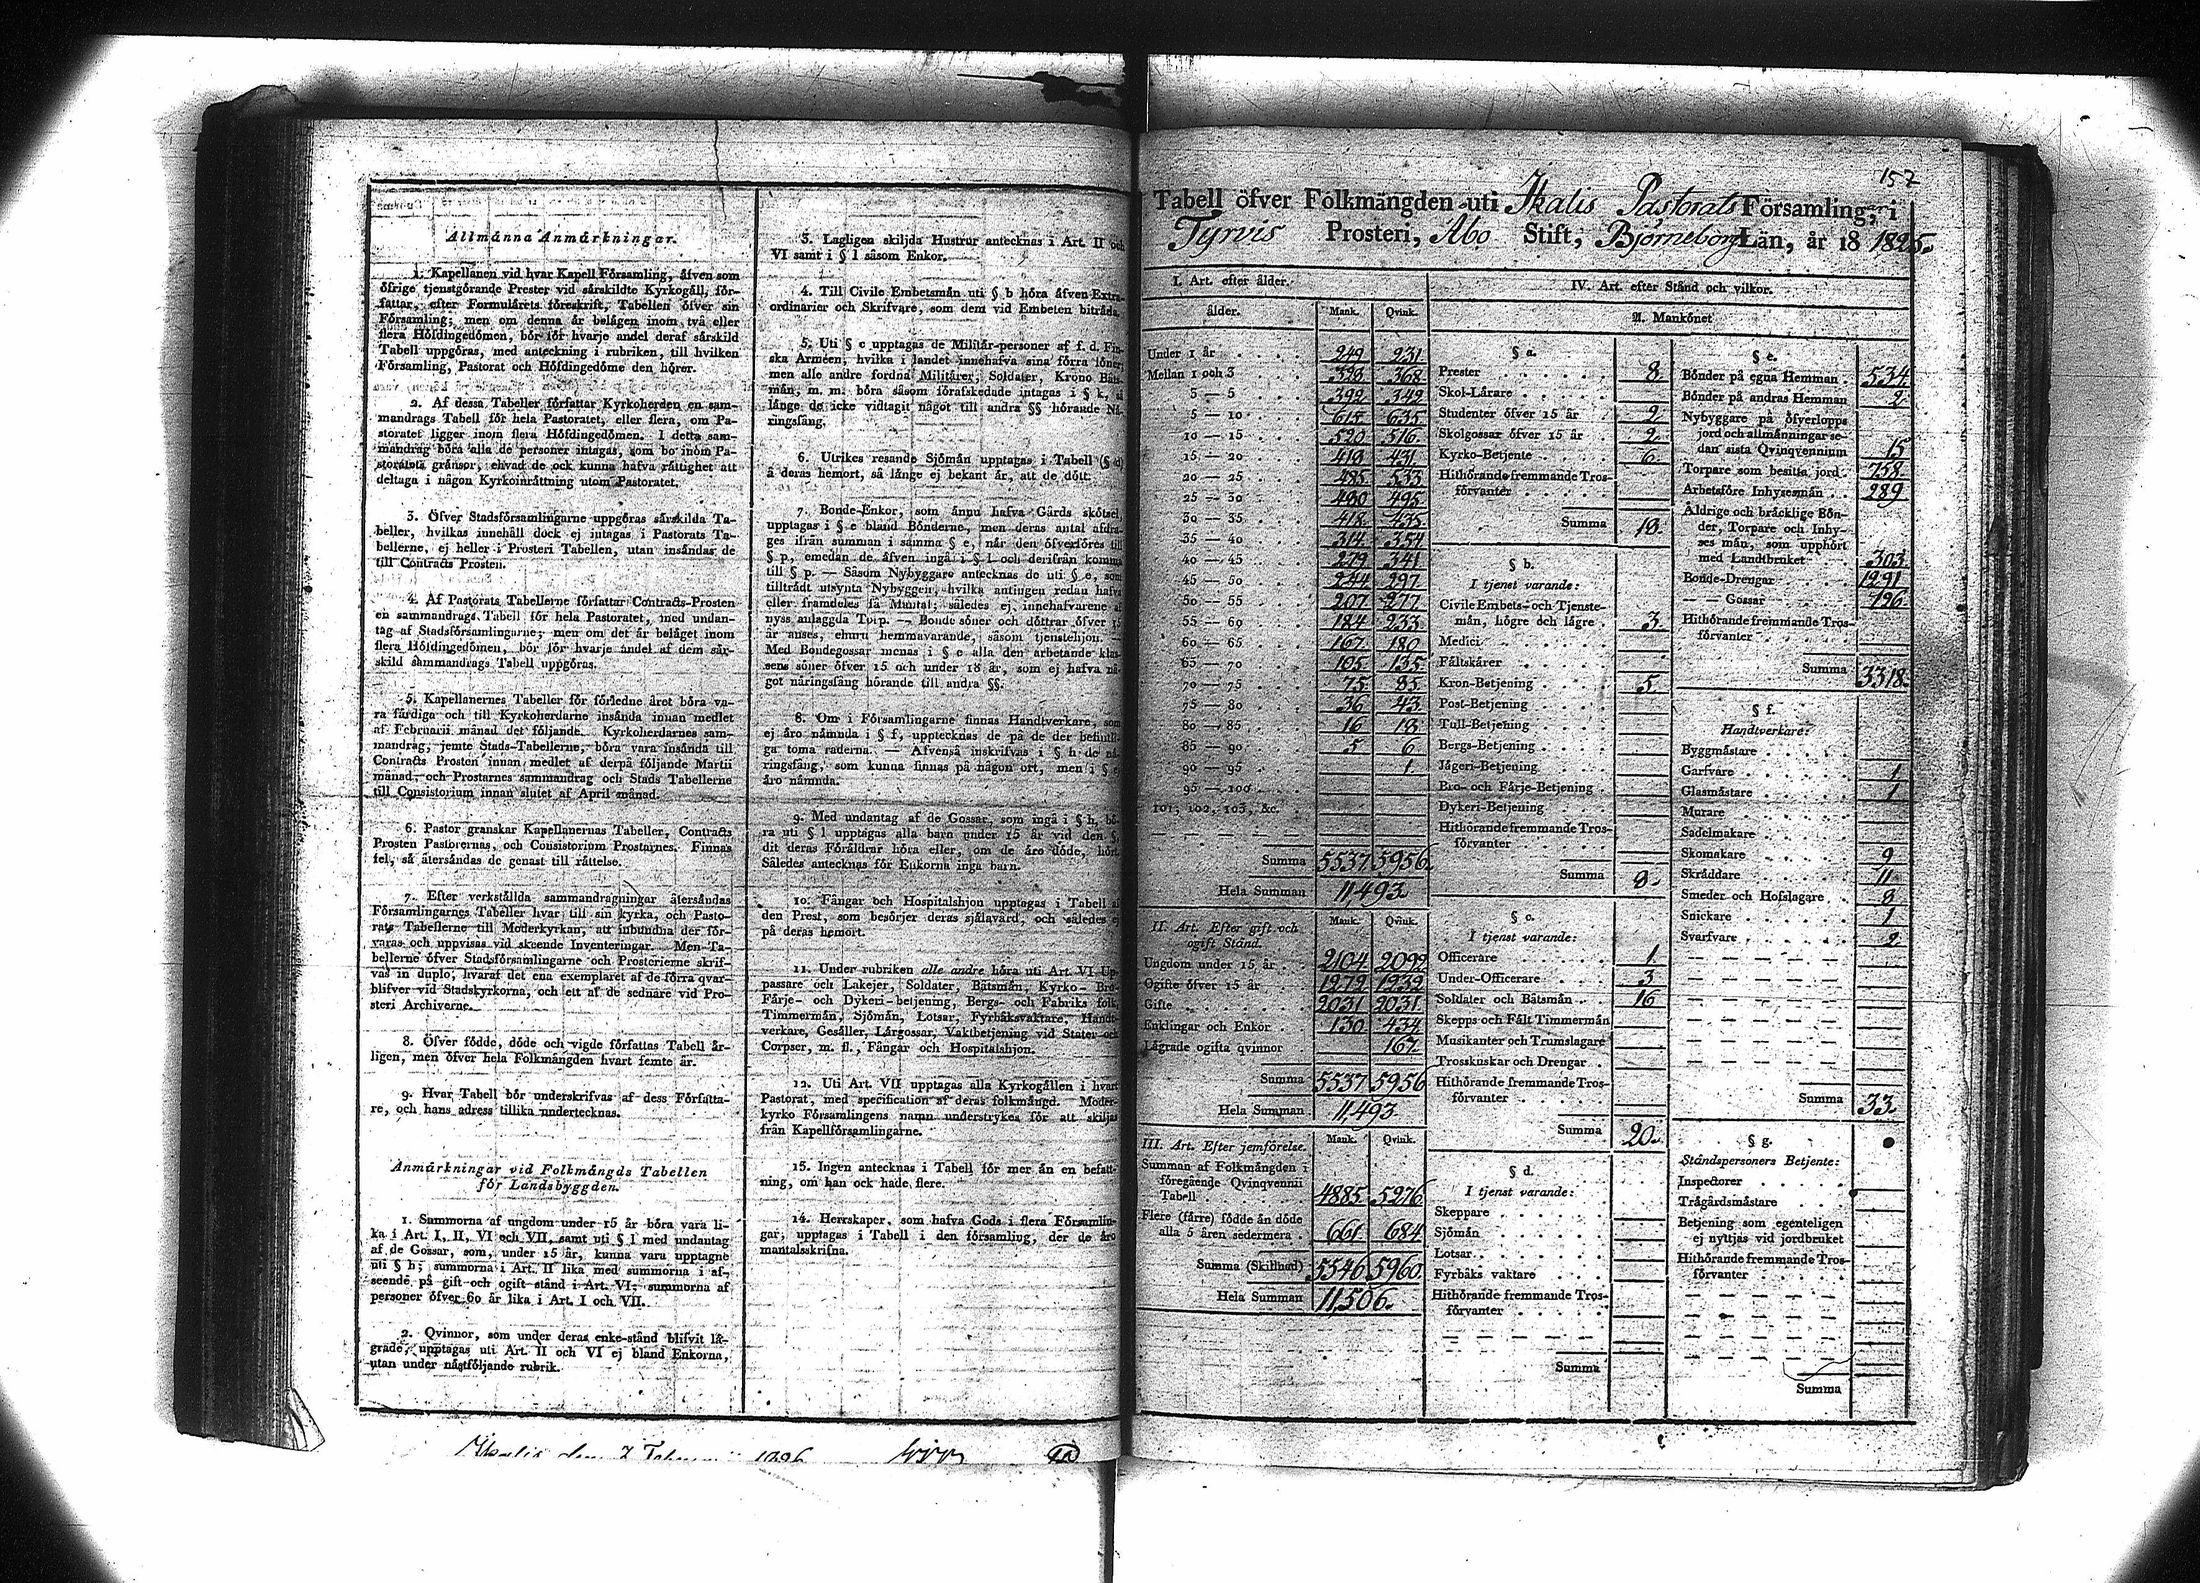 Allmänna Anmärkningar.
1. Kapellanen vid hvar Kapell Församling, äfven som
öfrige tjenstgörande Prester vid särskildte Kyrkogäll, för-
fattar, efter Formulärets föreskrift, Tabellen öfver sin
Församling; men om denna är belägen inom två eller
flera Höfdingedömen, bör för hvarje andel deraf särskild
Tabell uppgöras, med anteckning i rubriken, till hvilken
Församling, Pastorat och Höfdingedöme den hörer.
2. Af dessa Tabeller författar Kyrkoherden en sam-
mandrags Tabell för hela Pastoratet, eller flera, om Pa-
storatet ligger inom flera Höfdingedömen. I detta sam-
mandrag böra alla de personer intagas, som bo inom Pa-
storatets gränsor, ehvad de ock kunna hafva rättighet att
deltaga i någon Kyrkoinrättning utom Pastoratet.
3. Öfver Stadsförsamlingarne uppgöras särskilda Ta-
beller, hvilkas innehåll dock ej intagas i Pastorats Ta-
bellerne, ej heller i Prosteri Tabellen, utan insändas de
till Contracts Prosten.
4. Af Pastorats Tabellerne författar Contracts-Prosten
en sammandrags Tabell för hela Pastoratet, med undan-
tag af Stadsförsamlingarne; men om det är beläget inom
flera Höfdingedömen, bör för hvarje andel af dem sär-
skild sammandrags Tabell uppgöras.
5. Kapellanernes Tabeller för förledne året böra va-
ra färdiga och till Kyrkoherdarne insända innan medlet
af Februarii månad det följande. Kyrkoherdarnes sam-
mandrag, jemte Stads-Tabellerne, böra vara insända till
Contracts Prosten innan medlet af derpå följande Martii
månad, och Prostarnes sammandrag och Stads Tabellerne
till Consistorium innan slutet af April månad.
6. Pastor granskar Kapellanernas Tabeller, Contracts
Prosten Pastorernas, och Consistorium Prostarnes. Finnas
fel, så återsändas de genast till rättelse.
7. Efter verkställda sammandragningar återsändas
Församlingarnes Tabeller hvar till sin kyrka, och Pasto-
rats Tabellerne till Moderkyrkan, att inbundna der för-
varas och uppvisas vid skeende Inventeringar. Men Ta-
bellerne öfver Stadsförsamlingarne och Prosterierne skrif-
vas in duplo, hvaraf det ena exemplaret af de förra qvar-
blifver vid Stadskyrkorna, och ett af de sednare vid Pro-
steri Archiverne.
8. Öfver födde, döde och vigde författas Tabell år-
ligen, men öfver hela Folkmängden hvart femte år.
9. Hvar Tabell bör underskrifvas af dess Författa-
re, och hans adress tillika undertecknas.
Anmärkningar vid Folkmängds Tabellen
för Landsbyggden.
1. Summorna af ungdom under 15 år böra vara li-
ka i Art. I, II, VI och VII, samt uti § l med undantag
af de Gossar, som, under 15 år, kunna vara upptagne
uti § h; summorna i Art. II lika med summorna i af-
seende på gift och ogift stånd i Art. VI; summorna af
personer öfver 60 år lika i Art. I och VII.
2. Qvinnor, som under deras enke-stånd blifvit lä-
grade, upptagas uti Art. II och VI ej bland Enkorna,
utan under nästföljande rubrik.
3. Lagligen skiljda Hustrur antecknas i Art. II och
VI samt i § l såsom Enkor.
4. Till Civile Embetsmän uti § b höra äfven Extra-
ordinarier och Skrifvare, som dem vid Embeten biträda.
5. Uti § c upptagas de Militär-personer af f. d. Fin-
ska Arméen, hvilka i landet innehafva sina förra löner;
men alle andre fordna Militärer, Soldater, Krono Båts-
män, m. m. böra såsom förafskedade intagas i § k, så
länge de icke vidtagit något till andra §§ hörande Nä-
ringsfång.
6. Utrikes resande Sjömän upptagas i Tabell (§ d)
å deras hemort, så länge ej bekant är, att de dött.
7. Bonde-Enkor, som ännu hafva Gårds skötsel,
upptagas i § e bland Bönderne, men deras antal afdra-
ges ifrån summan i samma § e, när den öfverföres till
§ p, emedan de äfven ingå i § l och derifrån komma
till § p. — Såsom Nybyggare antecknas de uti § e, som
tillträdt utsynta Nybyggen, hvilka antingen redan hafva
eller framdeles få Mantal; således ej innehafvarene af
nyss anlaggda Torp. — Bonde söner och döttrar öfver 15
år anses, ehuru hemmavarande, såsom tjenstehjon. —
Med Bondegossar menas i § e alla den arbetande klas-
sens söner öfver 15 och under 18 år, som ej hafva nå-
got näringsfång hörande till andra §§.
8. Om i Församlingarne finnas Handtverkare, som
ej äro nämnda i § f, upptecknas de på de der befintli-
ga toma raderna. — Äfvenså inskrifvas i § h de nä-
ringsfång, som kunna finnas på någon ort, men i § ej
äro nämnda.
9. Med undantag af de Gossar, som ingå i § h, bö-
ra uti § l upptagas alla barn under 15 år vid den §,
dit deras Föräldrar höra eller, om de äro döde, hört.
Således antecknas för Enkorna inga barn.
10. Fångar och Hospitalshjon upptagas i Tabell af
den Prest, som besörjer deras själavård, och således ej
på deras hemort.
11. Under rubriken alle andre höra uti Art. VI Up-
passare och Lakejer, Soldater, Båtsmän, Kyrko- Bro-
Färje- och Dykeri-betjening, Bergs- och Fabriks folk,
Timmermän, Sjömän, Lotsar, Fyrbåksvaktare, Handt-
verkare, Gesäller, Lärgossar, Vaktbetjening vid Stater och
Corpser, m. fl., Fångar och Hospitalshjon.
12. Uti Art. VII upptagas alla Kyrkogällen i hvart
Pastorat, med specification af deras folkmängd. Moder-
kyrko Församlingens namn understrykes för att skiljas
från Kapellförsamlingarne.
13. Ingen antecknas i Tabell för mer än en befatt-
ning, om han ock hade flere.
14. Herrskaper, som hafva Gods i flera Församlin-
gar, upptagas i Tabell i den församling, der de äro
mantalsskrifna.
157
Tabell öfver Folkmängden uti Ikalis Pastorats Församling, i
Tyrvis Prosteri, Åbo Stift, Björneborgs Län, år 18 1825.
I. Art. efter ålder.
ålder. Mank. Qvink.
Under 1 år 249 231
Mellan 1 och 3 393 368
3 — 5 392 342
5 — 10 615 635
10 — 15 520 516
15 — 20 419 431
20 — 25 485 533
25 — 30 490 495
30 — 35 418 435
35 — 40 314 354
40 — 45 279 341
45 — 50 244 297
50 — 55 207 277
55 — 60 184 233
60 — 65 167 180
65 — 70 105 135
70 — 75 75 85
75 — 80 36 43
80 — 85 16 18
85 — 90 5 6
90 — 95 1
95 — 100
101, 102, 103, &c.
Summa 5537 5956
Hela Summan 11,493.
II. Art. Efter gift och Mank. Qvink.
ogift Stånd.
Ungdom under 15 år 2104 2092
Ogifte öfver 15 år 1272 1232
Gifte 2031 2031
Enklingar och Enkor 130 434
Lägrade ogifta qvinnor 167
Summa 5537 5956
Hela Summan 11,493
III. Art. Efter jemförelse. Mank. Qvink.
Summan af Folkmängden i
föregående Qvinqvennii
Tabell 4885 5276
Flere (färre) födde än döde
alla 5 åren sedermera 661 684
Summa (Skillnad) 5546 5960
Hela Summan 11,506.
IV. Art. efter Stånd och vilkor.
A. Mankönet
§ a.
Prester 8
Skol-Lärare
Studenter öfver 15 år 2
Skolgossar öfver 15 år 2
Kyrko-Betjente 6
Hithörande fremmande Tros-
förvanter
Summa 18.
§ b.
I tjenst varande:
Civile Embets- och Tjenste-
män, högre och lägre 3.
Medici
Fältskärer
Kron-Betjening 5.
Post-Betjening
Tull-Betjening
Bergs-Betjening
Jägeri-Betjening
Bro- och Färje-Betjening
Dykeri-Betjening
Hithörande fremmande Tros-
förvanter
Summa 8.
§ c.
I tjenst varande:
Officerare 1.
Under-Officerare 3
Soldater och Båtsmän 16
Skepps och Fält Timmermän
Musikanter och Trumslagare
Trosskuskar och Drengar
Hithörande fremmande Tros-
förvanter
Summa 20.
§ d.
I tjenst varande:
Skeppare
Sjömän
Lotsar
Fyrbåks vaktare
Hithörande fremmande Tros-
förvanter
Summa
§ e.
Bönder på egna Hemman 534
Bönder på andras Hemman 2
Nybyggare på öfverlopps
jord och allmänningar se-
dan sista Qvinqvennium 15
Torpare som besitta jord 758.
Arbetsföre Inhysesmän 289
Åldrige och bräcklige Bön-
der, Torpare och Inhy-
ses män, som upphört
med Landtbruket 303.
Bonde-Drengar 1291
— — Gossar 126
Hithörande fremmande Tros-
förvanter
Summa 3318.
§ f.
Handtverkare:
Byggmästare
Garfvare 1
Glasmästare 1
Murare
Sadelmakare
Skomakare 9
Skräddare 11
Smeder och Hofslagare 8
Snickare 1
Svarfvare 2
Summa 33.
§ g.
Ståndspersoners Betjente:
Inspectorer
Trägårdsmästare
Betjening som egenteligen
ej nyttjas vid jordbruket
Hithörande fremmande Tros-
förvanter
Summa